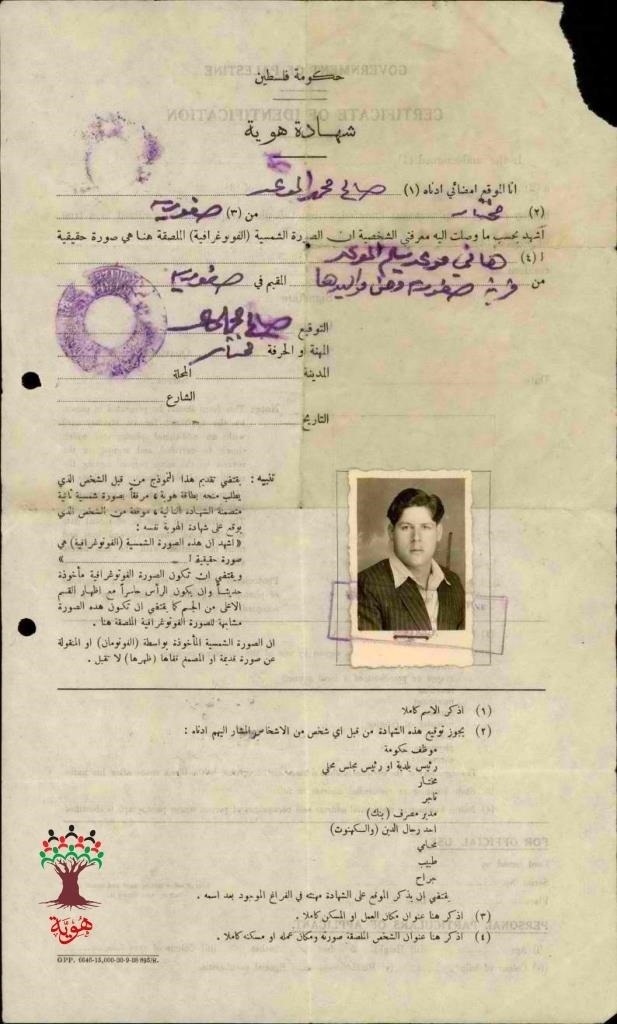 حكومة فلسطين
شهادة هوية
انا الموقع امضائي ادناه (١) صالح محمد الموعد
(٢) مختار من (٣) صفورية
اشهد بحسب ما وصلت اليه معرفتي الشخصية ان الصورة الشمسية (الفوتوغرافية) الملصقة هنا هي صورة حقيقية
ا (٤) هاني موعد سليم الموعد
من قرية صفورية ومن مواليدها المقيم في صفورية
التوقيع
المهنة او الحرفة مختار
المدينة المحلة
الشارع
التاريخ
تنبيه : يقتضي تقديم هذا النموذج من قبل الشخص الذي
يطلب منحه بطاقة هوية ، مرفقاً بصورة شمسية ثانية
متضمنة الشهادة التالية ، موقعة من الشخص الذي
يوقع على شهادة الهوية نفسه :
« اشهد ان هذه الصورة الشمسية (الفوتوغرافية) هي
صورة حقيقية ا »
ويقتضي ان تكون الصورة الفوتوغرافية مأخوذة
حديثاً وان يكون الرأس حاسراً مع اظهار القسم
الاعلى من الجسم كما يقتضي ان تكون هذه الصورة
مشابهة للصورة الفوتوغرافية الملصقة هنا .
ان الصورة الشمسية المأخوذة بواسطة (الفوتومان) او المنقولة
عن صورة قديمة او المصمغ قفاها (ظهرها) لا تقبل .
(١) اذكر الاسم كاملا
(٢) يجوز توقيع هذه الشهادة من قبل اي شخص من الاشخاص المشار اليهم ادناه :
موظف حكومة
رئيس بلدية او رئيس مجلس محلي
مختار
تاجر
مدير مصرف (بنك)
احد رجال الدين (والسكهنوت)
محامي
طبيب
جراح
يقتضي ان يذكر الموقع على الشهادة مهنته في الفراغ الموجود بعد اسمه .
(٣) اذكر هنا عنوان مكان العمل او المسكن كاملا .
(٤) اذكر هنا عنوان الشخص الملصقة صورته ومكان عمله او مسكنه كاملا .
هوية